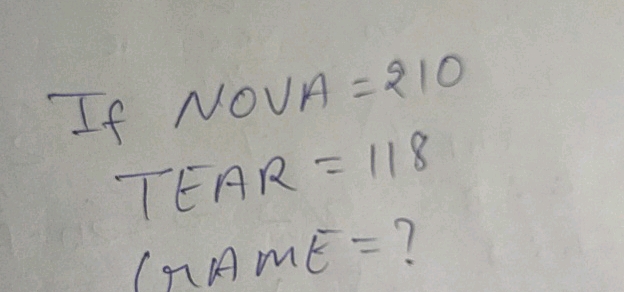 If NOVA = 210
TEAR = 118
GAME = ?